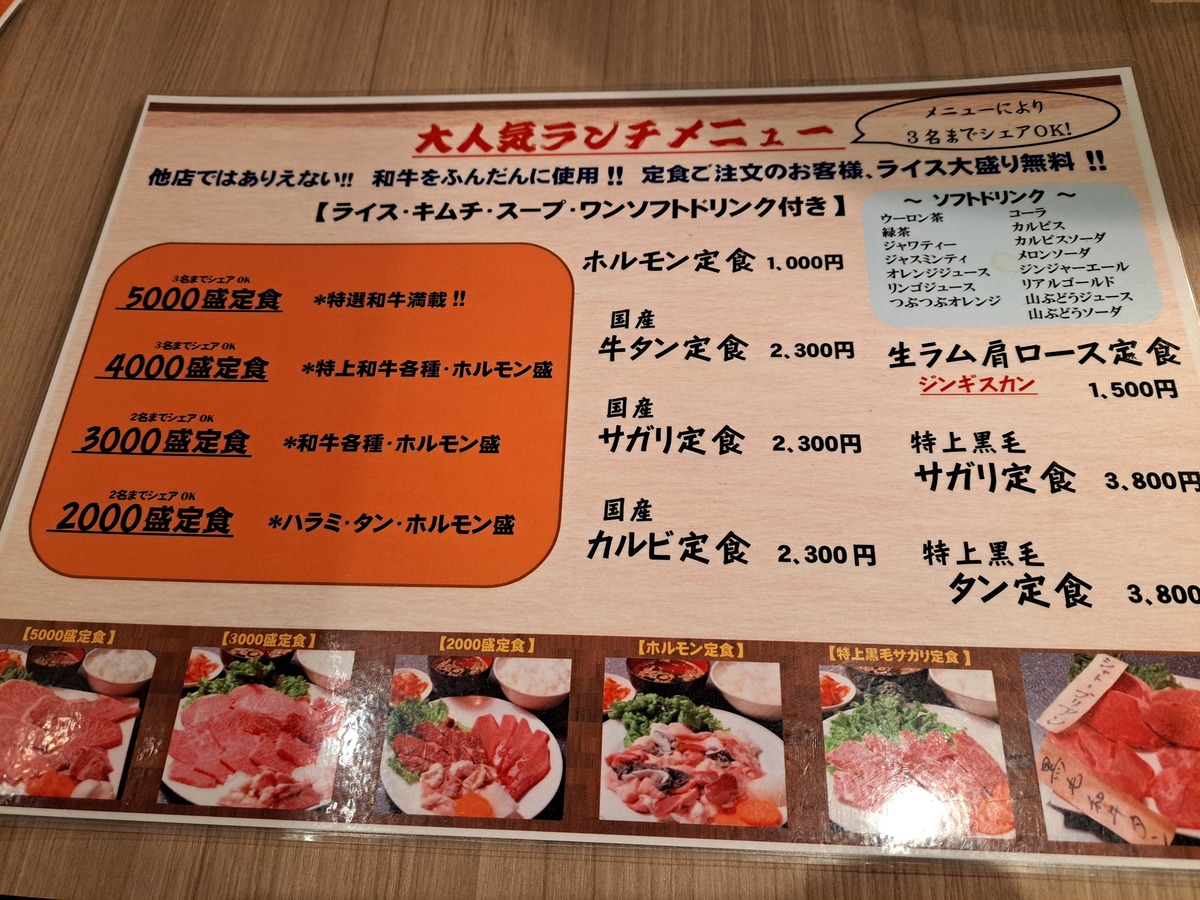 大人気ランチメニュー
メニューにより
3名までシェアOK!
他店ではありえない!! 和牛をふんだんに使用!! 定食ご注文のお客様、ライス大盛り無料!!
【ライス・キムチ・スープ・ワンソフトドリンク付き】
～ ソフトドリンク ～
ウーロン茶
緑茶
ジャワティー
ジャスミンティ
オレンジジュース
リンゴジュース
つぶつぶオレンジ
コーラ
カルピス
カルピスソーダ
メロンソーダ
ジンジャーエール
リアルゴールド
山ぶどうジュース
山ぶどうソーダ
3名までシェア OK
5000盛定食 *特選和牛満載!!
3名までシェア OK
4000盛定食 *特上和牛各種・ホルモン盛
2名までシェア OK
3000盛定食 *和牛各種・ホルモン盛
2名までシェア OK
2000盛定食 *ハラミ・タン・ホルモン盛
ホルモン定食 1,000円
国産
牛タン定食 2,300円
国産
サガリ定食 2,300円
国産
カルビ定食 2,300円
生ラム肩ロース定食
ジンギスカン 1,500円
特上黒毛
サガリ定食 3,800円
特上黒毛
タン定食 3,800
【5000盛定食】
【3000盛定食】
【2000盛定食】
【ホルモン定食】
【特上黒毛サガリ定食】
シャトーブリアン
黒毛和牛